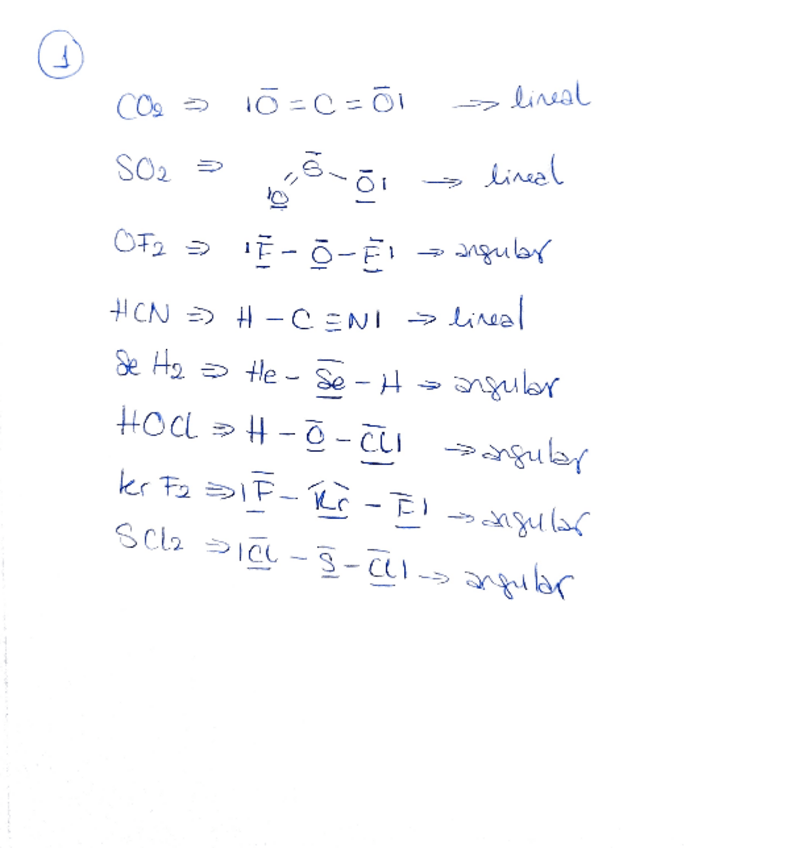 1
CO2 ⇒ |Ō = C = Ō| → lineal
SO2 ⇒ |O̲ = S̄ - Ō̲| → lineal
OF2 ⇒ |F̲̄ - Ō̲ - F̲̄| → angular
HCN ⇒ H - C ≡ N| → lineal
SeH2 ⇒ He - S̲̅e̲̅ - H → angular
HOCl ⇒ H - Ō̲ - C̲̅l̲̅| → angular
KrF2 ⇒ |F̲̄ - K̲r̲ - F̲̄| → angular
SCl2 ⇒ |C̲̅l̲̅ - S̲̄ - C̲̅l̲̅| → angular